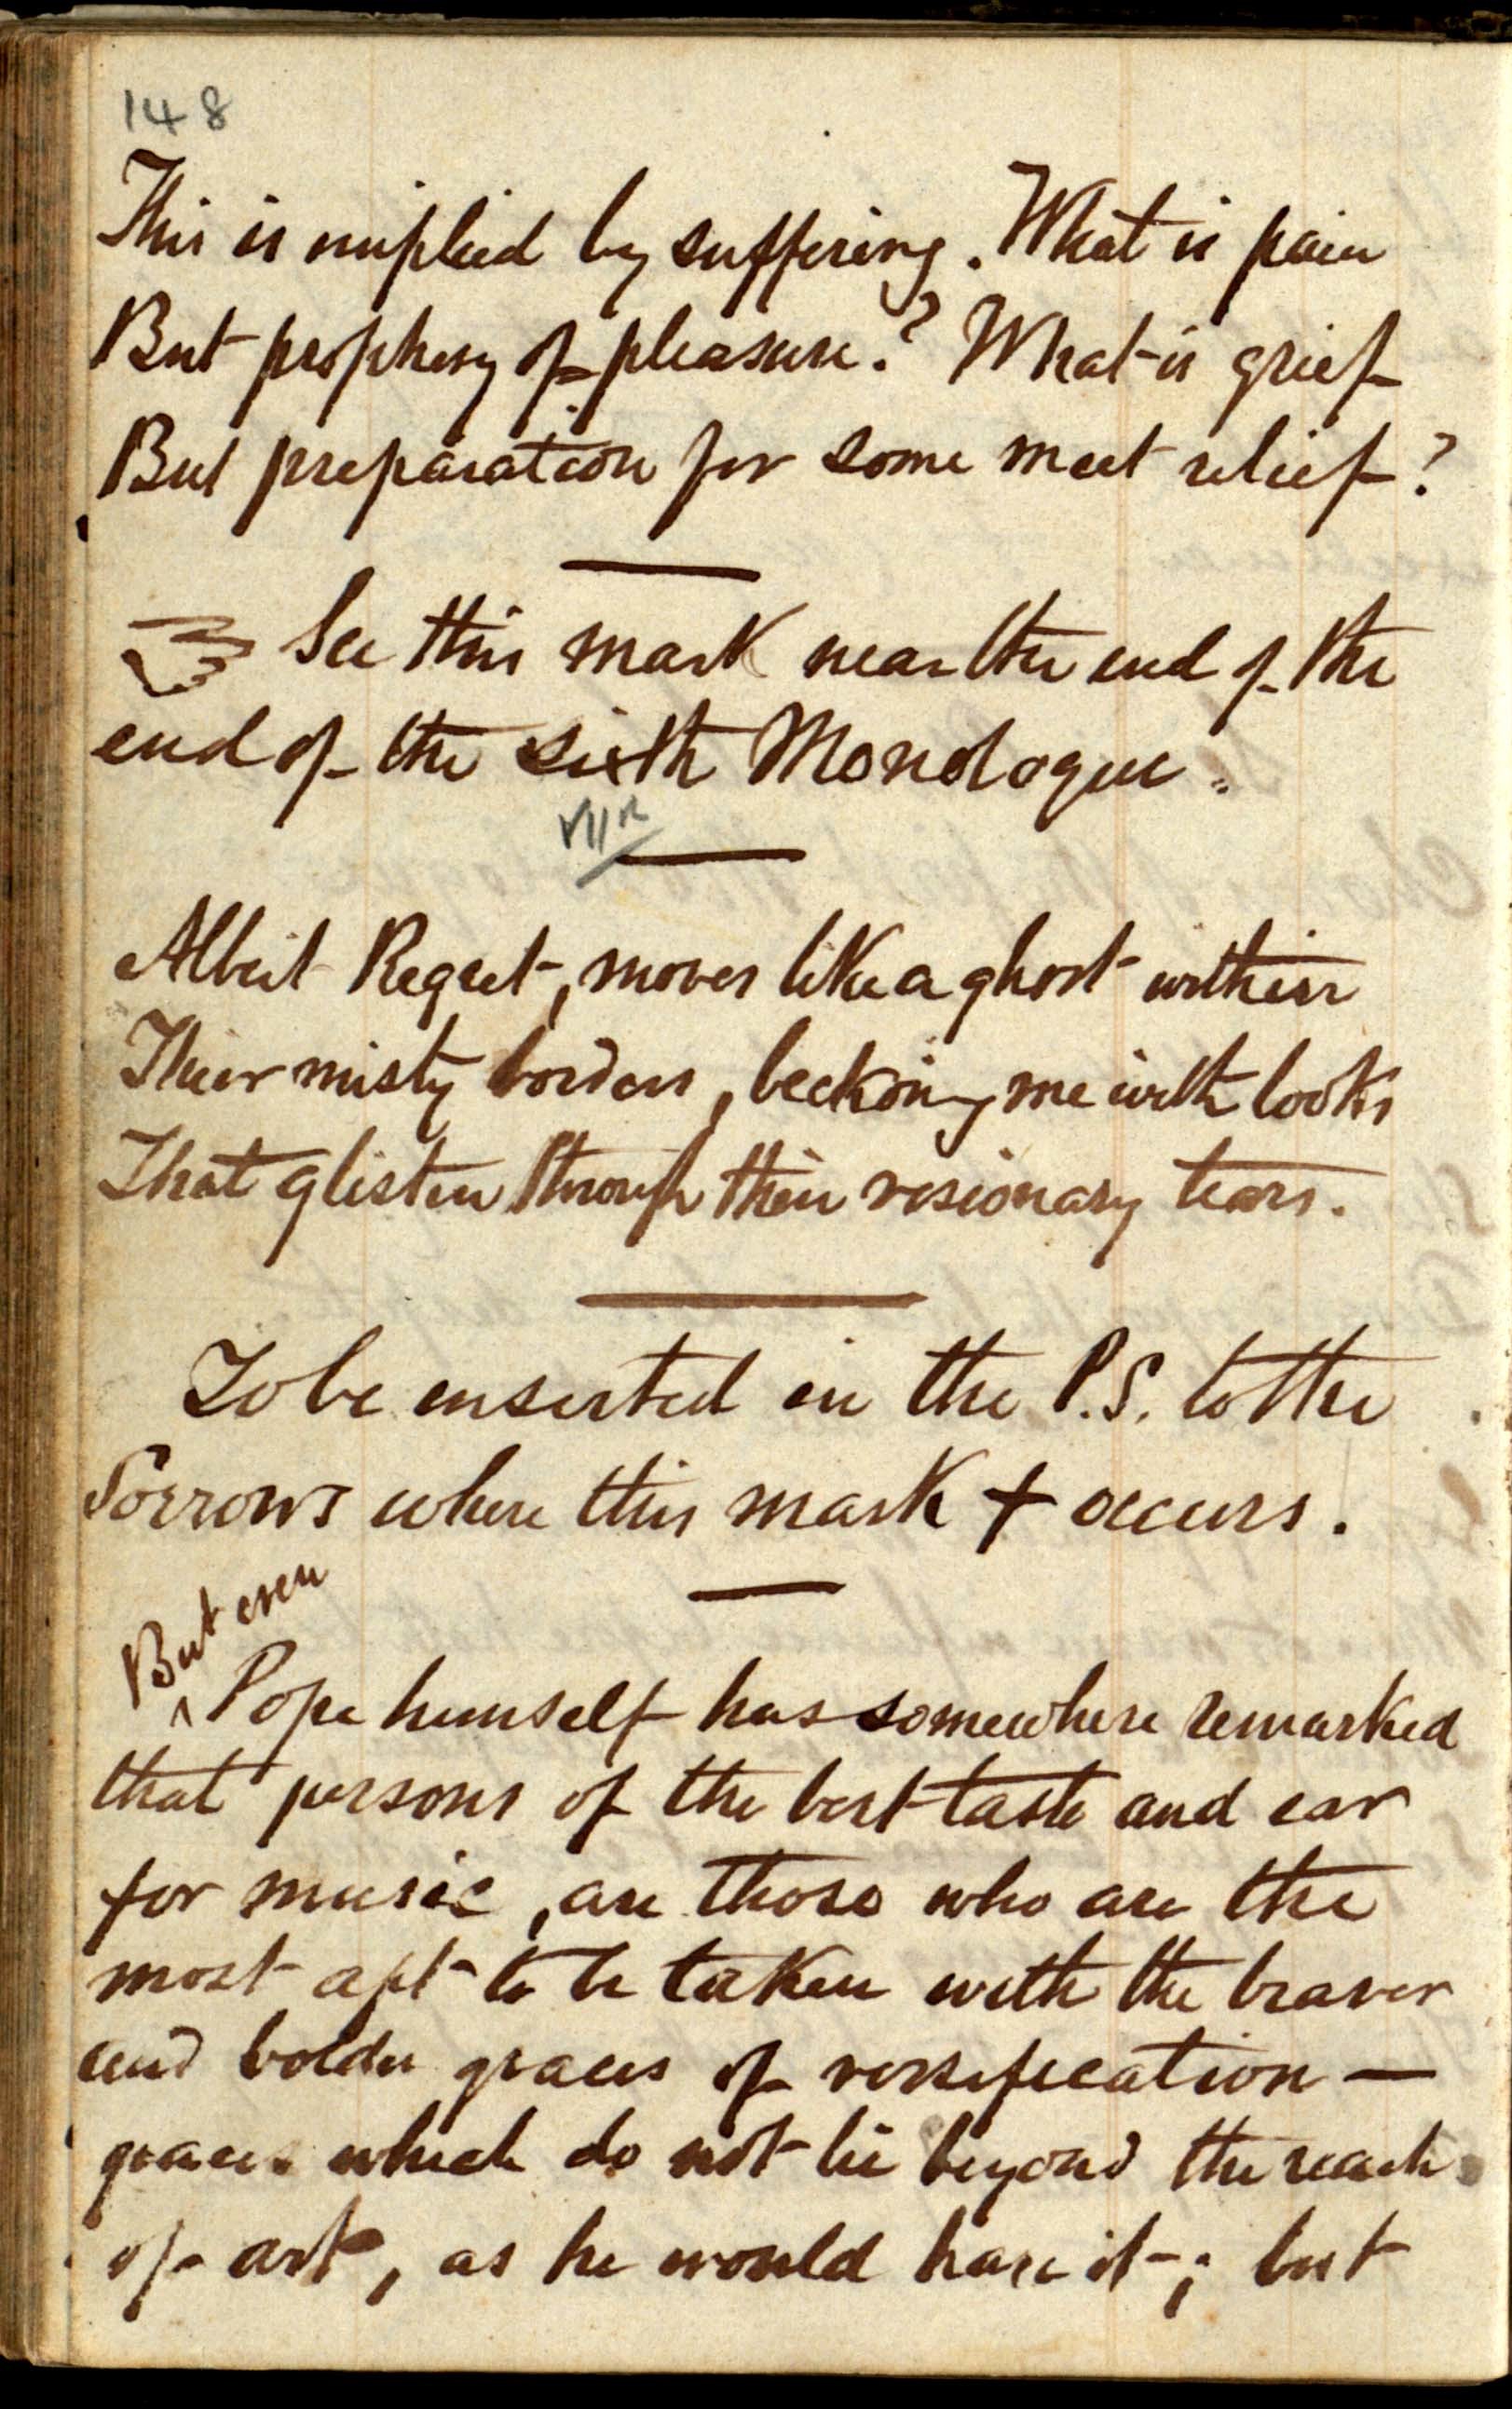 148
This is implied by suffering. What is pain
But prophesy of pleasure? What is grief
But preparation for some meet relief?
See this mark near the end of the
end of the sixth Monologue.
VII
Albeit Regret, moves like a ghost within
Their misty borders, beckoning me with looks
That glisten through their visionary tears.
To be inserted in the P.S. to the
Sorrows where this mark + occurs.
But even
^ Pope himself has somewhere remarked
that persons of the best taste and ear
for music, are those who are the
most apt to be taken with the braver
and bolder graces of versification —
graces which do not lie beyond the reach
of art, as he would have it; but